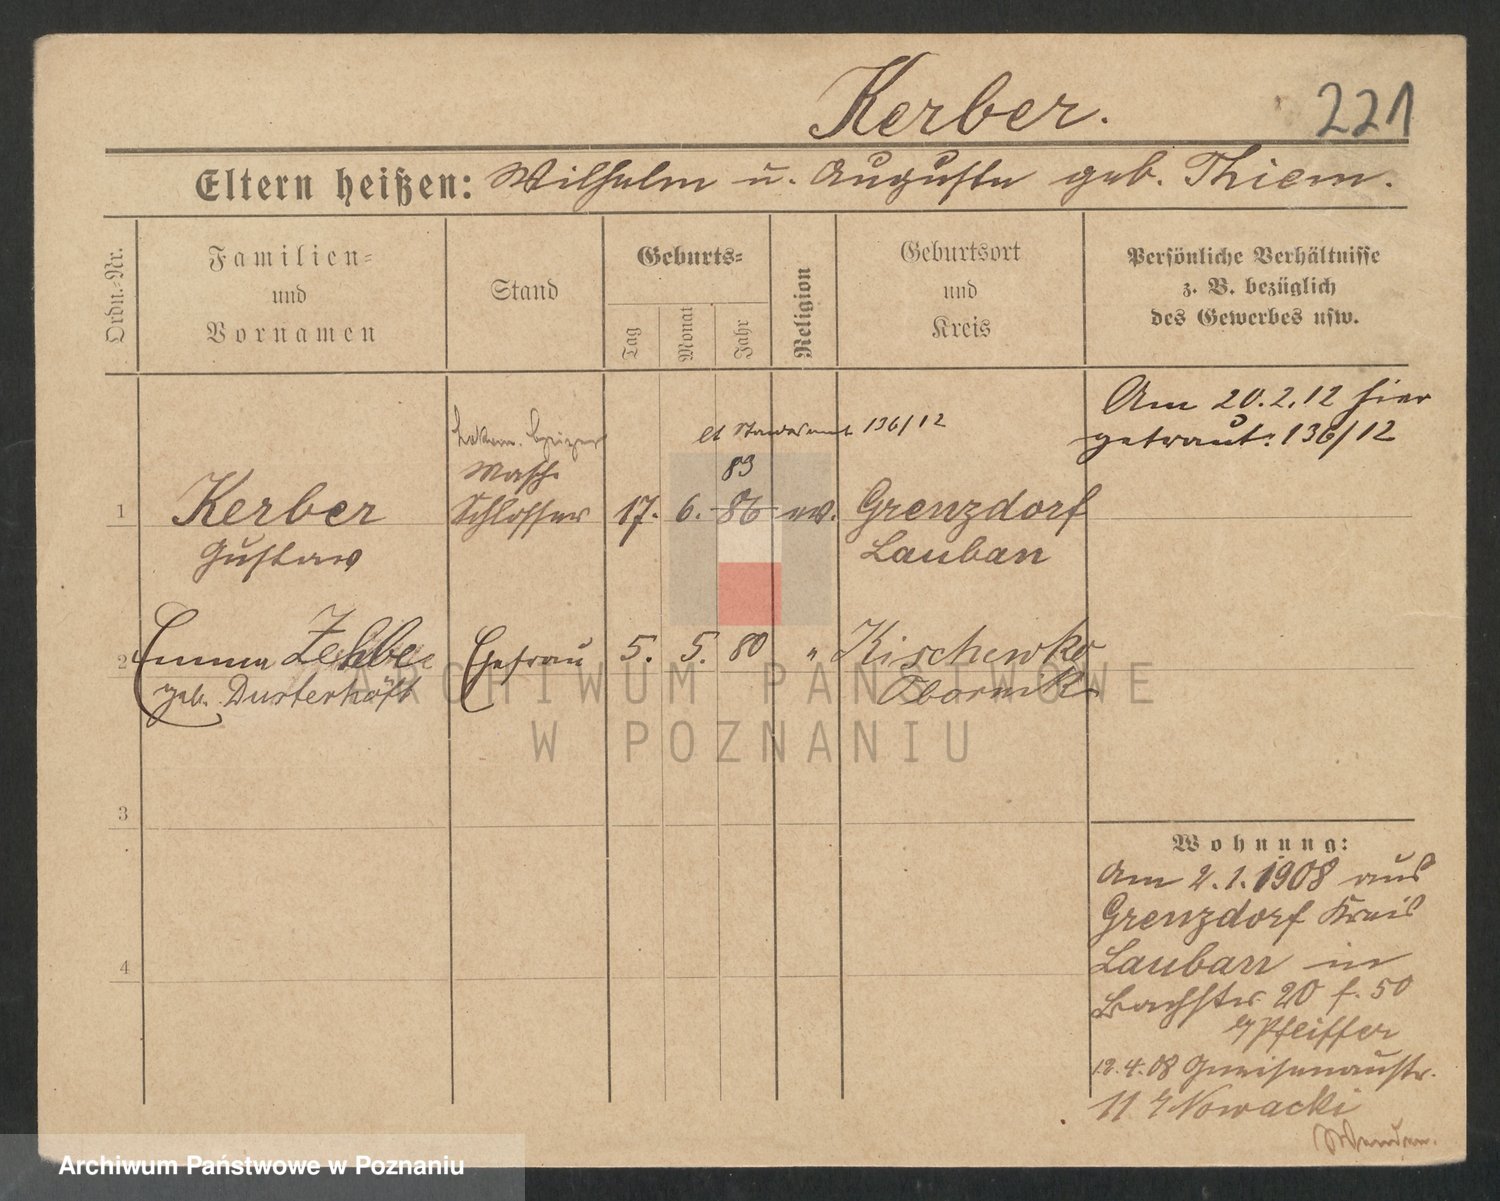 Kerber.
221
Eltern heißen: Wilhelm u. Auguste geb. Thiem.
Ordn.-Nr.
Familien-
und
Vornamen
Stand
Geburts-
Tag
Monat
Jahr
Religion
Geburtsort
und
Kreis
Persönliche Verhältnisse
z. B. bezüglich
des Gewerbes usw.
Am 20.2.12 hier
getraut: 136/12
Standesamt 136/12
Masch.
83
1 Kerber Schlosser 17. 6. 86 ev. Grenzdorf
Gustav Lauban
2 Emma Zehbe Ehefrau 5. 5. 80 " Kischewko
geb. Dusterhöft Obornik
3
4
Wohnung:
Am 2.1.1908 aus
Grenzdorf Kreis
Lauban in
Bachstr 20 f. 50
b/ Pfeiffer
12.4.08 Gneisenaustr.
11 b/ Nowacki
Wenden.
ARCHIWUM PAŃSTWOWE
W POZNANIU
Archiwum Państwowe w Poznaniu